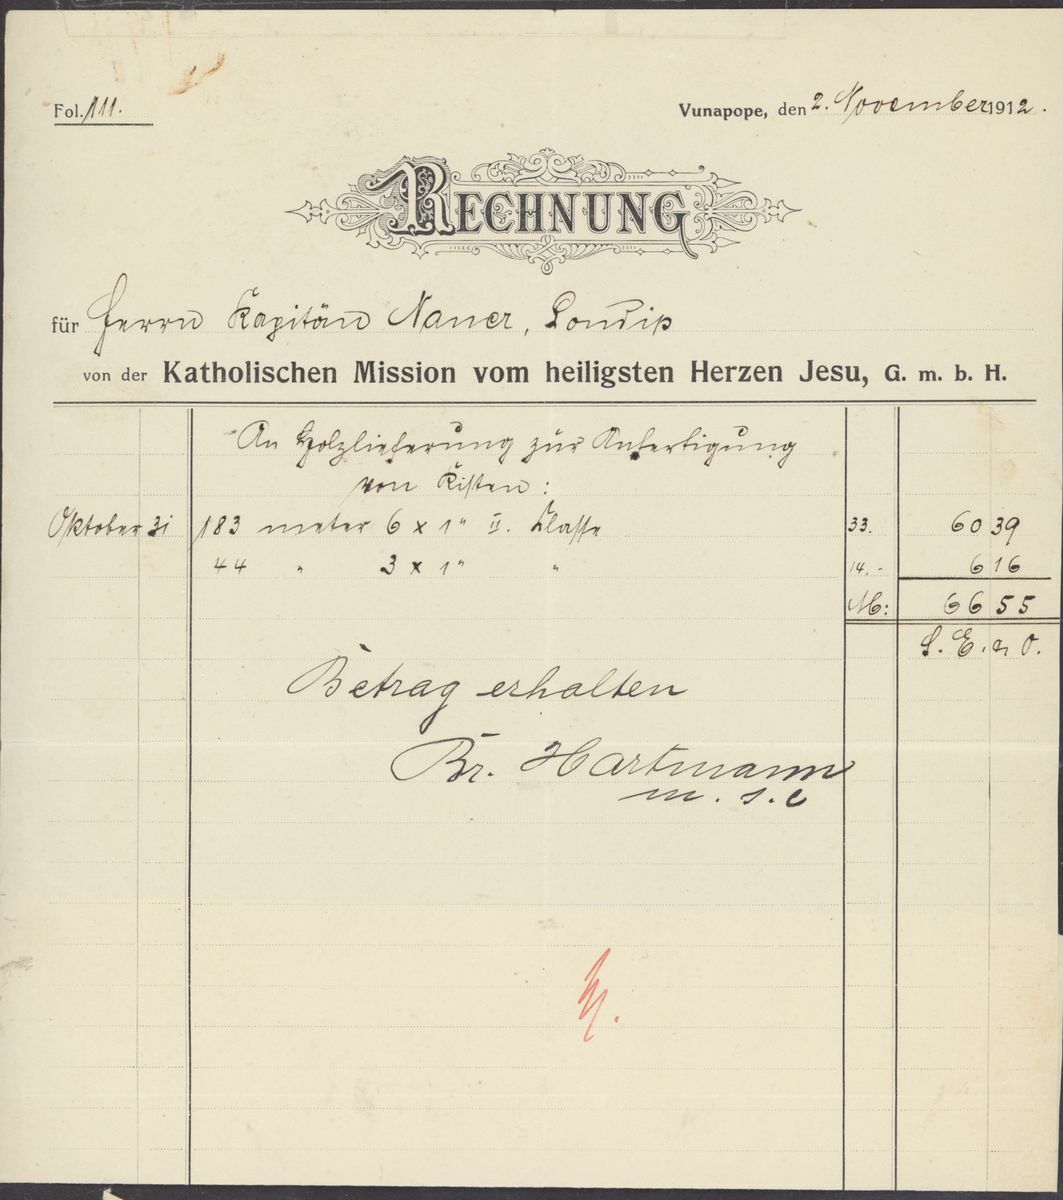 Fol. 111.
Vunapope, den 2. November 1912.
RECHNUNG
für Herrn Kapitän Nauer, Londip
von der Katholischen Mission vom heiligsten Herzen Jesu, G. m. b. H.
An Holzlieferung zur Anfertigung
von Kisten:
Oktober 31 183 meter 6 x 1" II. Klasse 33. 60 39
44 " 3 x 1" " 14.- 6 16
M: 66 55
S. E. & O.
Betrag erhalten
Br. Hartmann
m. s. c